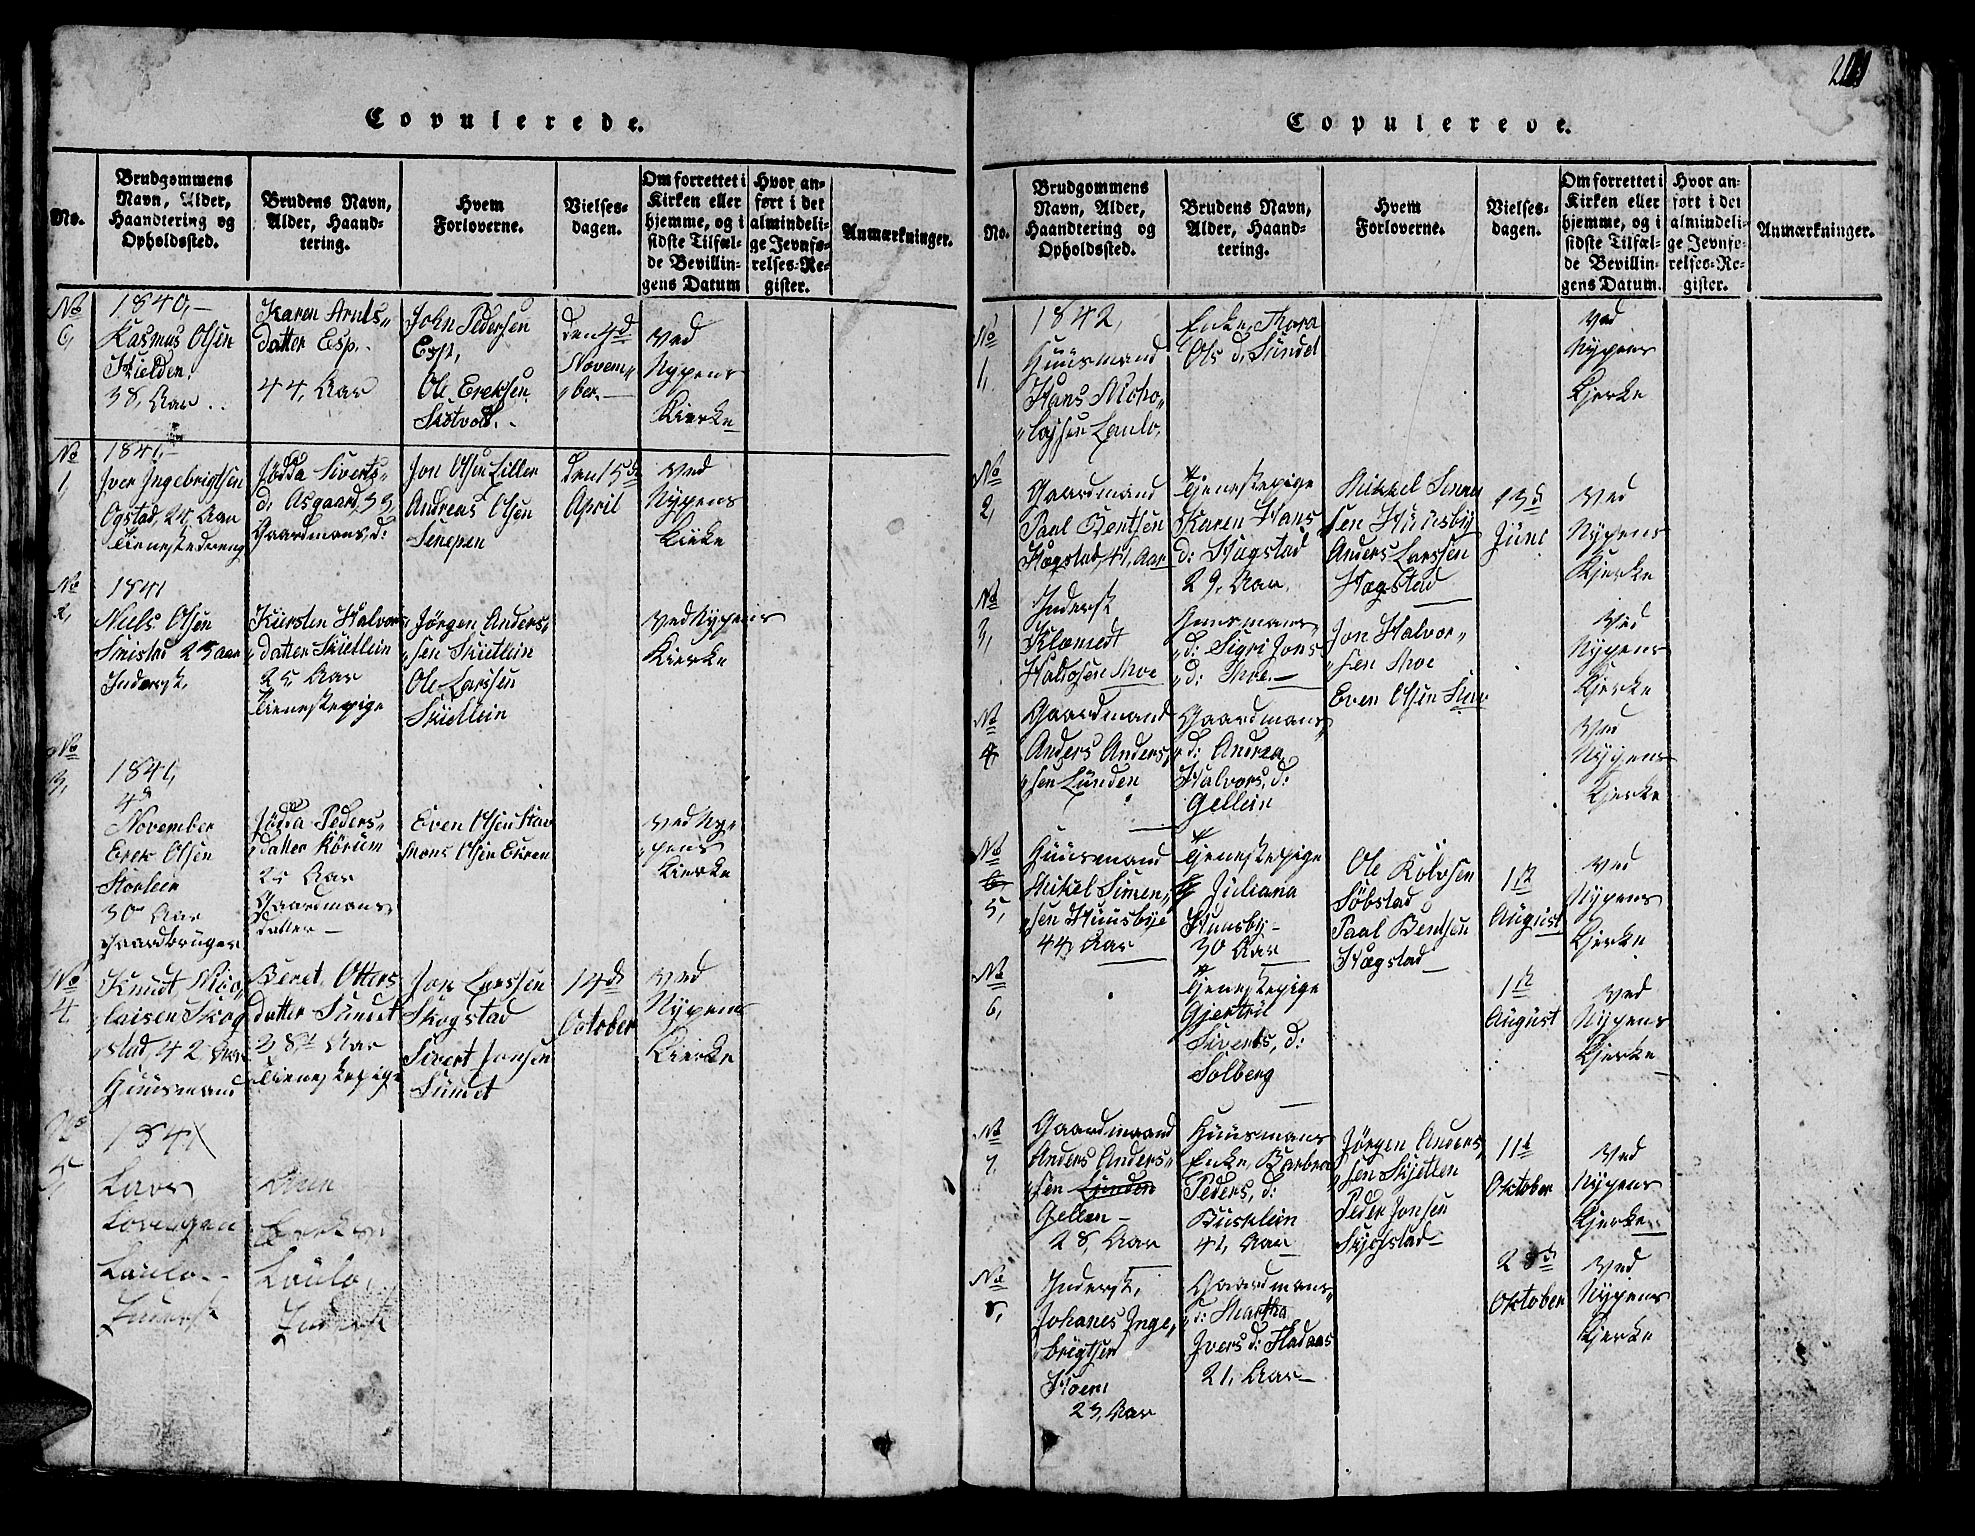 Copulerede.
No.
Brudgommens
Navn, Alder,
Haandtering og
Opholdssted.
Brudens Navn,
Alder, Haand-
tering.
Hvem
Forloverne.
Vielses-
dagen.
Om forrettet i
Kirken eller
hjemme, og i
sidste Tilfæl-
de Bevillin-
gens Datum
Hvor an-
ført i det
almindeli-
ge Jevnfø-
relses-Re-
gister.
Anmærkninger.
No
6,
1840,-
Rasmus Olsen
Kielden
38, Aar
Karen Arnts„
datter Esp.
44, Aar
John Pedersen
Esp,
Ole Ereksen
Den 4d
Novem„
„ber.
ved
Nypens
Kierke
No
1,
1841,-
Jver Jngebrigtsen
Ogstad, 24 Aar
Tienestedreng
Siverts„
d. Asgaard, 33,
Gaardmans, d:
Jon Olsen Liller
Andreas Olsen
Den 15d
April
ved
Nypens
Kirke
No
2,
1841
Niels Olsen
25 Aar
Jnderst,
Kiersten Halvors
„datter Skietlein
25, Aar
Tienestepige
Jørgen Anders,
„sen Skietlein
Ole Larssen
Skietlein
ved Nypens
Kierke
No
3,
1841,
4d
November
Erek Olsen
Storlein
30 Aar
Gaardbruger
Peders„
„datter Kørum
25 Aar
Gaardmans
datter
Even Olsen Stav
Mons Olsen Ekren
ved Ny„
„pens
Kierke
No
4,
Knudt Nico„
„laisen Skog
„stad, 42 Aar
Huusmand
Beret Otters
datter Sundet
28, Aar
Tienestepige
Jon Larssen
Skogstad
Sivert Jonsen
Sundet
14d
October
ved
Nypens
Kierke
No
5,
1841
Lars
Laulo
Jnderst
Ann
Laulo,
Jnderst
Copulerede.
No.
Brudgommens
Navn, Alder,
Haandtering og
Opholdssted.
Brudens Navn,
Alder, Haand-
tering.
Hvem
Forloverne.
Vielses-
dagen.
Om forrettet i
Kirken eller
hjemme, og i
sidste Tilfæl-
de Bevillin-
gens Datum.
Hvor an-
ført i det
almindeli-
ge Jevnfø-
relses-Re-
gister.
Anmærkninger.
No
1,
1842,
Huusmand
Hans Nicho„
„lajsen Laulo,
Enke, Thora
Ols d. Sundet
Ved
Nypens
Kjerke
No
2,
Gaardmand
Paul Bentsen
Hagstad, 41, Aar
Tjenestepige
Karen Hans
d: Hagstad
29, Aar,
Mikkel Simen
sen Huusby
Anders Larssen
Hagstad
13d
Juni
ved
Nypens
Kjerke
No
3,
Jnderst
Klemett
Moe
Huusmans„
„d: Sigri Jons
„d: Moe.
Jon Halvor„
„sen Moe
Even Olsen Stav
Ved
Nypens
Kjerke
No
4
Gaardmand
Anders Anders„
„sen Lunden
Gaardmans„
„d: Andrea
Halvors, d:
Gellein
Ved
Nypens
Kjerke
No
5,
Huusmand
Mikel Simen„
„sen Huusbye
44, Aar
Tjenestepige
Juliana
Huusby
30 Aar
Ole Kolvsen
Søbstad
Paal Bentsen
Hagstad
1st
August
Ved
Nypens
Kjerke
No
6,
Tjenestepige
Gjertru
Siverts, d:
Solberg
1st
August
ved
Nypens
Kjerke
No
7,
Gaardmaand
Anders Anders„
„sen Lunden
Gellen
28, Aar
Huusmans
Enke, Barbra
Peders, d:
Busklein
41, Aar
Jørgen Anders,
„sen Skjetlen
Peder Jonsen
Skjogstad
11t
Oktober
Ved
Nypens
Kjerke
No
8,
Jnderst,
Johanes Jnge„
„brigtsen
Hoem
23, Aar
Gaardmans„
„d: Martha
Jvers d: Fladaas
21, Aar
28d
Oktober
Ved
Nypens
Kjerke